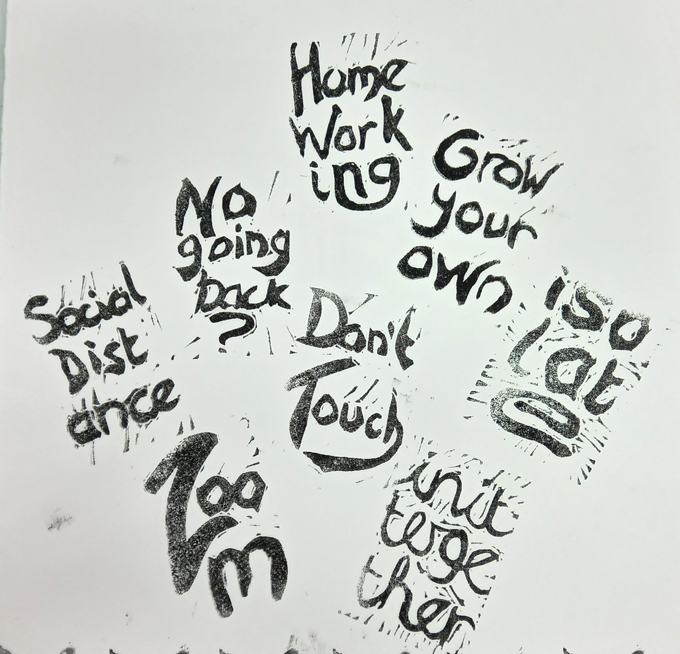 Home
Work
ing
Grow
your
own
No
going
back
?
iso
Lat
e
Social
Dist
ance
Don't
Touch
Zoo
m
init
toge
ther